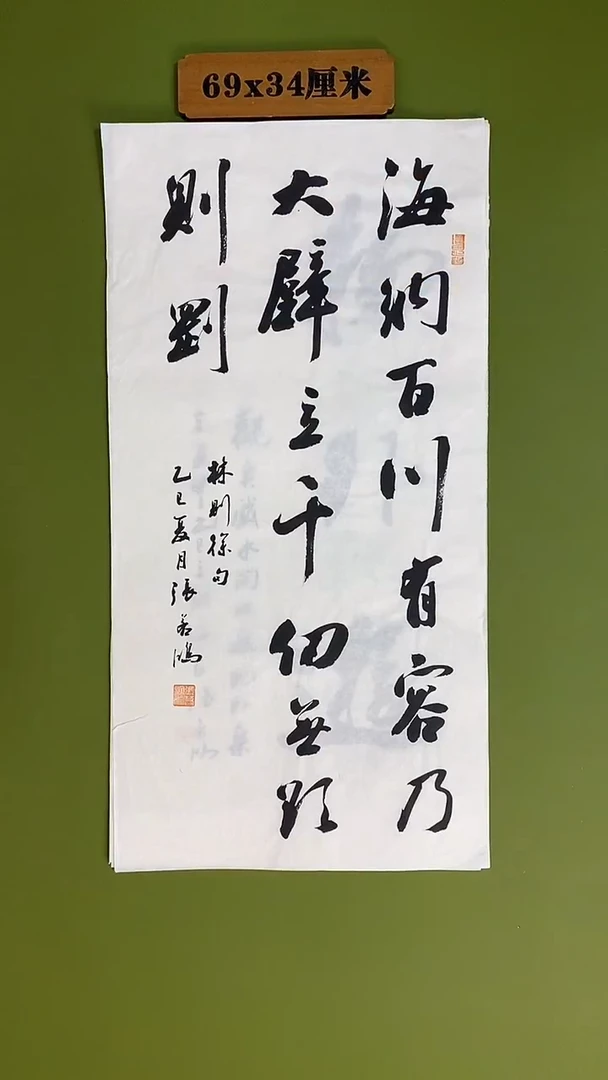 69x34厘米
海納百川有容乃
大壁立千仞無欲
則剛
林則徐句
乙巳夏月張若鴻